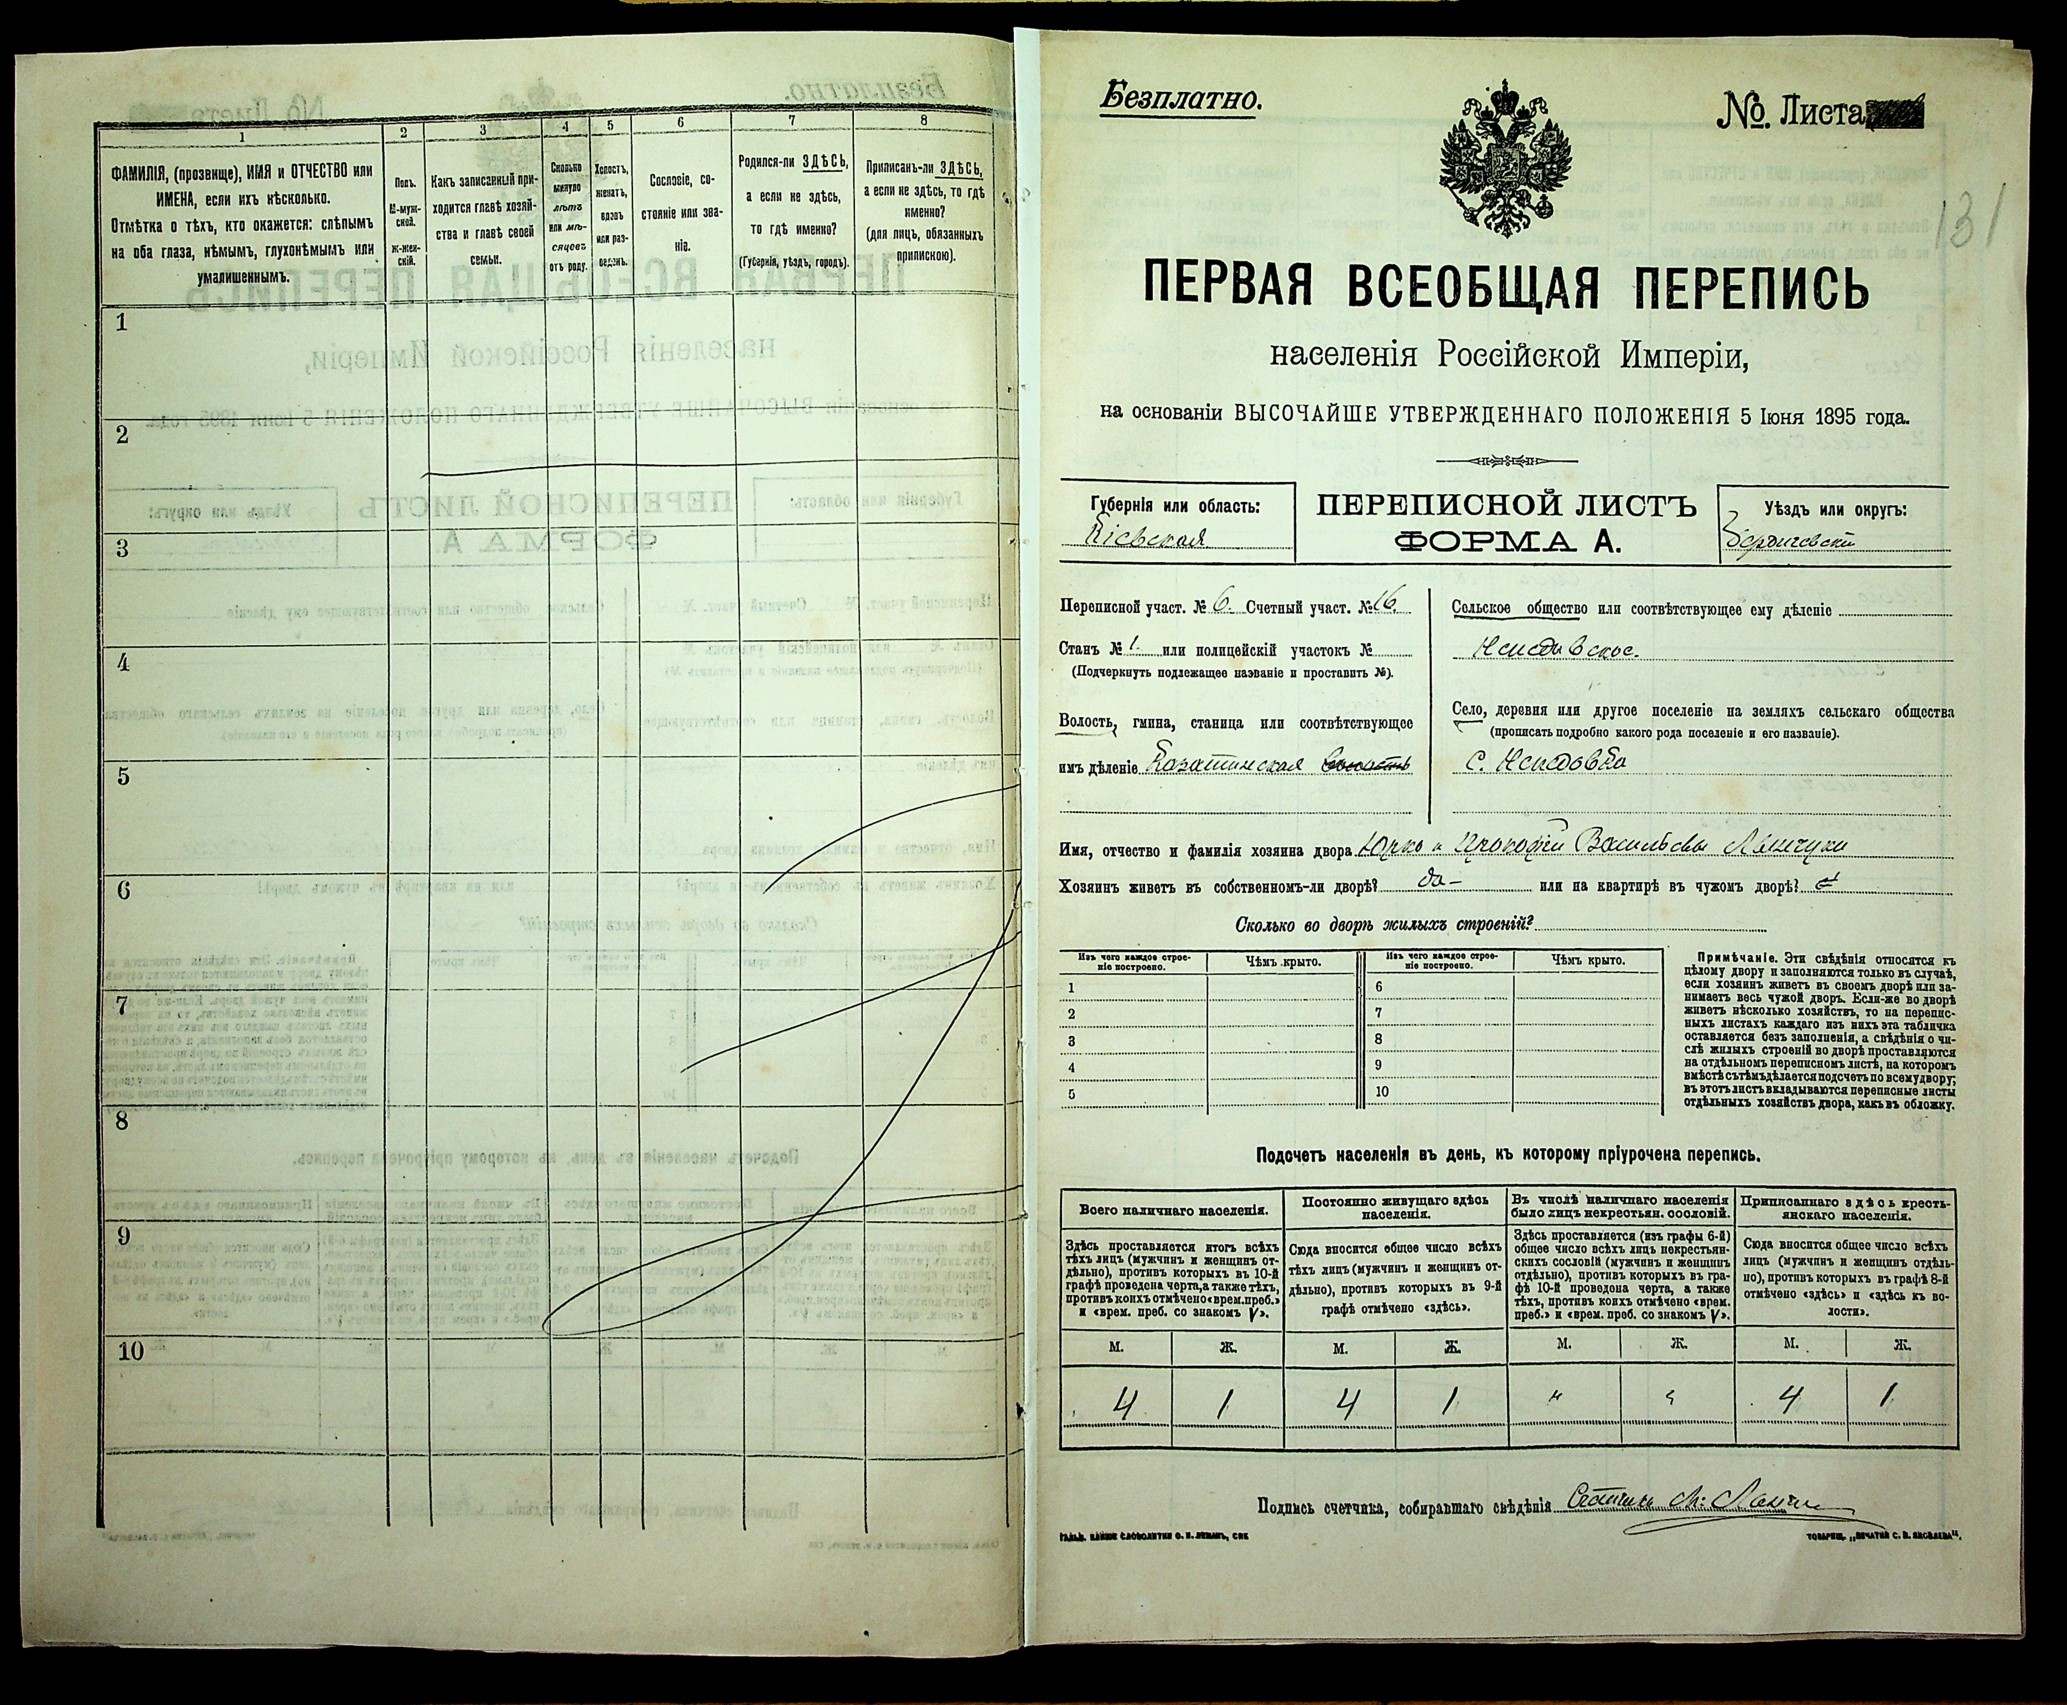 1
2
3
4
5
6
7
8
ФАМИЛІЯ, (прозвище), ИМЯ и ОТЧЕСТВО или
ИМЕНА, если ихъ нѣсколько.
Отмѣтка о тѣхъ, кто окажется: слѣпымъ
на оба глаза, нѣмымъ, глухонѣмымъ или
умалишеннымъ.
Полъ.
М-муж-
ской.
ж-жен-
скій.
Какъ записанный при-
ходится главѣ хозяй-
ства и главѣ своей
семьи.
Сколько
минуло
лѣтъ
или мѣ-
сяцевъ
отъ роду.
Холостъ,
женатъ,
вдовъ
или раз-
веденъ.
Сословіе, со-
стояніе или зва-
ніе.
Родился-ли ЗДѢСЬ,
а если не здѣсь,
то гдѣ именно?
(Губернія, уѣздъ, городъ).
Приписанъ-ли ЗДѢСЬ,
а если не здѣсь, то гдѣ
именно?
(для лицъ, обязанныхъ
припискою).
1
2
3
4
5
6
7
8
9
10
Безплатно.
№. Листа
131
ПЕРВАЯ ВСЕОБЩАЯ ПЕРЕПИСЬ
населенія Россійской Имперіи,
на основаніи ВЫСОЧАЙШЕ УТВЕРЖДЕННАГО ПОЛОЖЕНІЯ 5 Іюня 1895 года.
Губернія или область:
Кіевская
ПЕРЕПИСНОЙ ЛИСТЪ
ФОРМА А.
Уѣздъ или округъ:
Бердичевскій
Переписной участ. № 6. Счетный участ. № 16.
Станъ № 1. или полицейскій участокъ №
(Подчеркнуть подлежащее названіе и проставить №).
Волость, гмина, станица или соотвѣтствующее
имъ дѣленіе Казатинская волость
Сельское общество или соотвѣтствующее ему дѣленіе
Село, деревня или другое поселеніе на земляхъ сельскаго общества
(прописать подробно какого рода поселеніе и его названіе).
с.
Имя, отчество и фамилія хозяина двора Юрко и Прокофій Васильевы
Хозяинъ живетъ въ собственномъ-ли дворѣ? да – или на квартирѣ въ чужомъ дворѣ?
Сколько во дворѣ жилыхъ строеній?
Изъ чего каждое строе-
ніе построено.
Чѣмъ крыто.
Изъ чего каждое строе-
ніе построено.
Чѣмъ крыто.
1
2
3
4
5
6
7
8
9
10
Примѣчаніе. Эти свѣдѣнія относятся къ
цѣлому двору и заполняются только въ случаѣ,
если хозяинъ живетъ въ своемъ дворѣ или за-
нимаетъ весь чужой дворъ. Если-же во дворѣ
живетъ нѣсколько хозяйствъ, то на перепис-
ныхъ листахъ каждаго изъ нихъ эта табличка
оставляется безъ заполненія, а свѣдѣнія о чи-
слѣ жилыхъ строеній во дворѣ проставляются
на отдѣльномъ переписномъ листѣ, на которомъ
вмѣстѣ съ тѣмъ дѣлается подсчетъ по всему двору;
въ этотъ листъ вкладываются переписные листы
отдѣльныхъ хозяйствъ двора, какъ въ обложку.
Подсчетъ населенія въ день, къ которому пріурочена перепись.
Всего наличнаго населенія.
Постоянно живущаго здѣсь
населенія.
Въ числѣ наличнаго населенія
было лицъ некрестьян. сословій.
Приписаннаго здѣсь кресть-
янскаго населенія.
Здѣсь проставляется итогъ всѣхъ
тѣхъ лицъ (мужчинъ и женщинъ от-
дѣльно), противъ которыхъ въ 10-й
графѣ проведена черта, а также тѣхъ,
противъ коихъ отмѣчено «врем. преб.»
и «врем. преб. со знакомъ V».
Сюда вносится общее число всѣхъ
тѣхъ лицъ (мужчинъ и женщинъ от-
дѣльно), противъ которыхъ въ 9-й
графѣ отмѣчено «здѣсь».
Здѣсь проставляется (изъ графы 6-й)
общее число всѣхъ лицъ некрестьян-
скихъ сословій (мужчинъ и женщинъ
отдѣльно), противъ которыхъ въ гра-
фѣ 10-й проведена черта, а также
тѣхъ, противъ коихъ отмѣчено «врем.
преб.» и «врем. преб. со знакомъ V».
Сюда вносится общее число всѣхъ
лицъ (мужчинъ и женщинъ отдѣль-
но), противъ которыхъ въ графѣ 8-й
отмѣчено «здѣсь» и «здѣсь къ во-
лости».
М. Ж. М. Ж. М. Ж. М. Ж.
4 1 4 1 " " 4 1
Подпись счетчика, собиравшаго свѣдѣнія
ТОВАРИЩ. „ПЕЧАТНЯ С. П. ЯКОВЛЕВА".